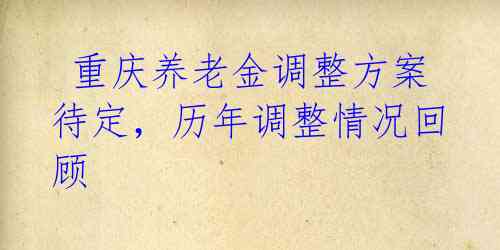 重庆养老金调整方案
待定，历年调整情况回
顾